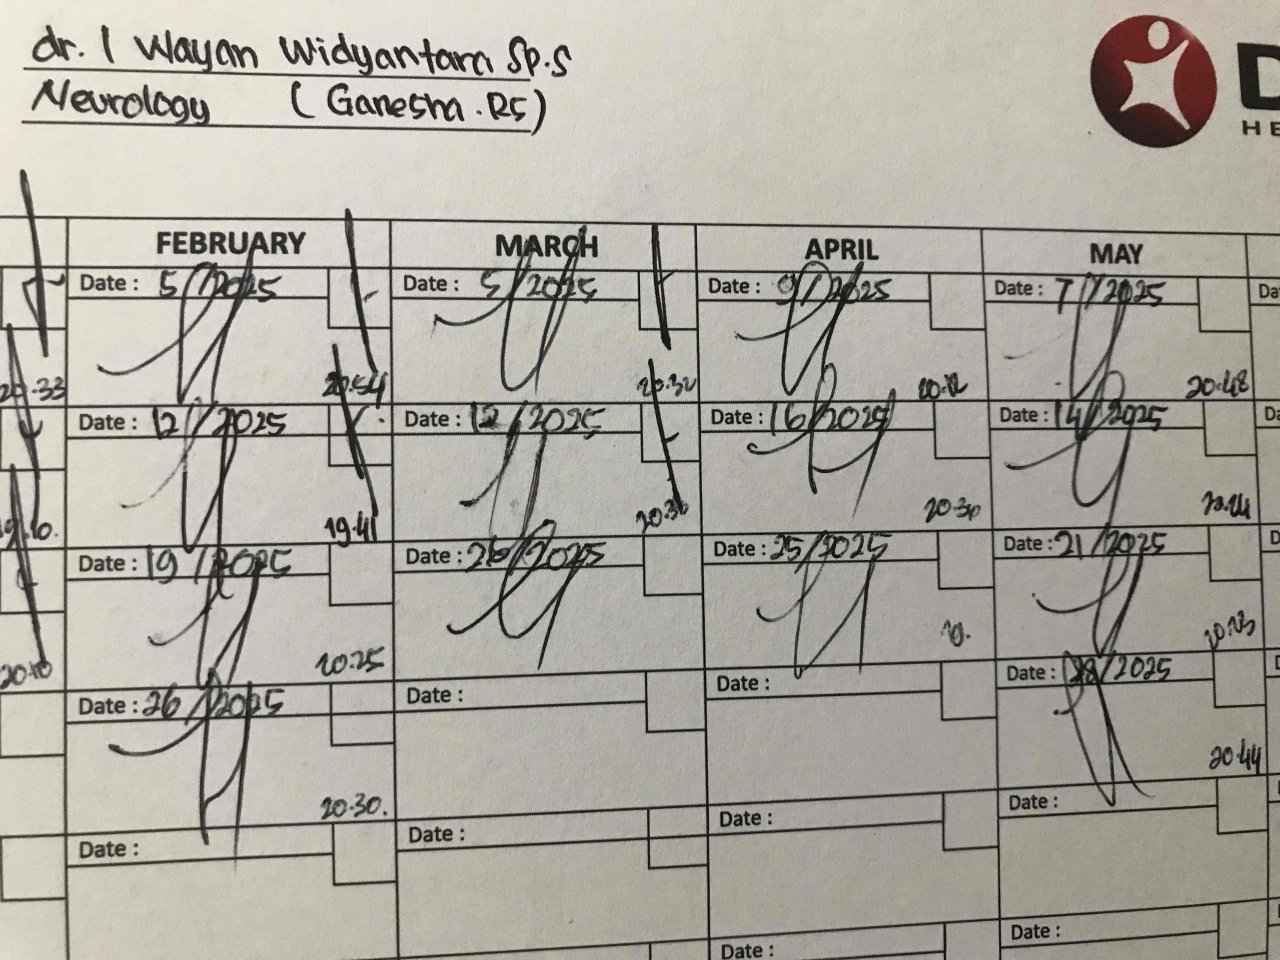 dr. I Wayan Widyantara Sp.S
Neurology (Ganesha.RS)
FEBRUARY MARCH APRIL MAY
Date : 5/2025 Date : 5/2025 Date : 9/2025 Date : 7/2025
20.33 20.54 20.32 20.12 20.48
Date : 12/2025 Date : 12/2025 Date : 16/2025 Date : 14/2025
19.41 20.36 20.30
Date : 19/2025 Date : 26/2025 Date : 25/2025 Date : 21/2025
20.10 20.25 20.23
Date : 26/2025 Date : Date : Date : 28/2025
20.30. 20.44
Date : Date : Date : Date :
Date : Date :